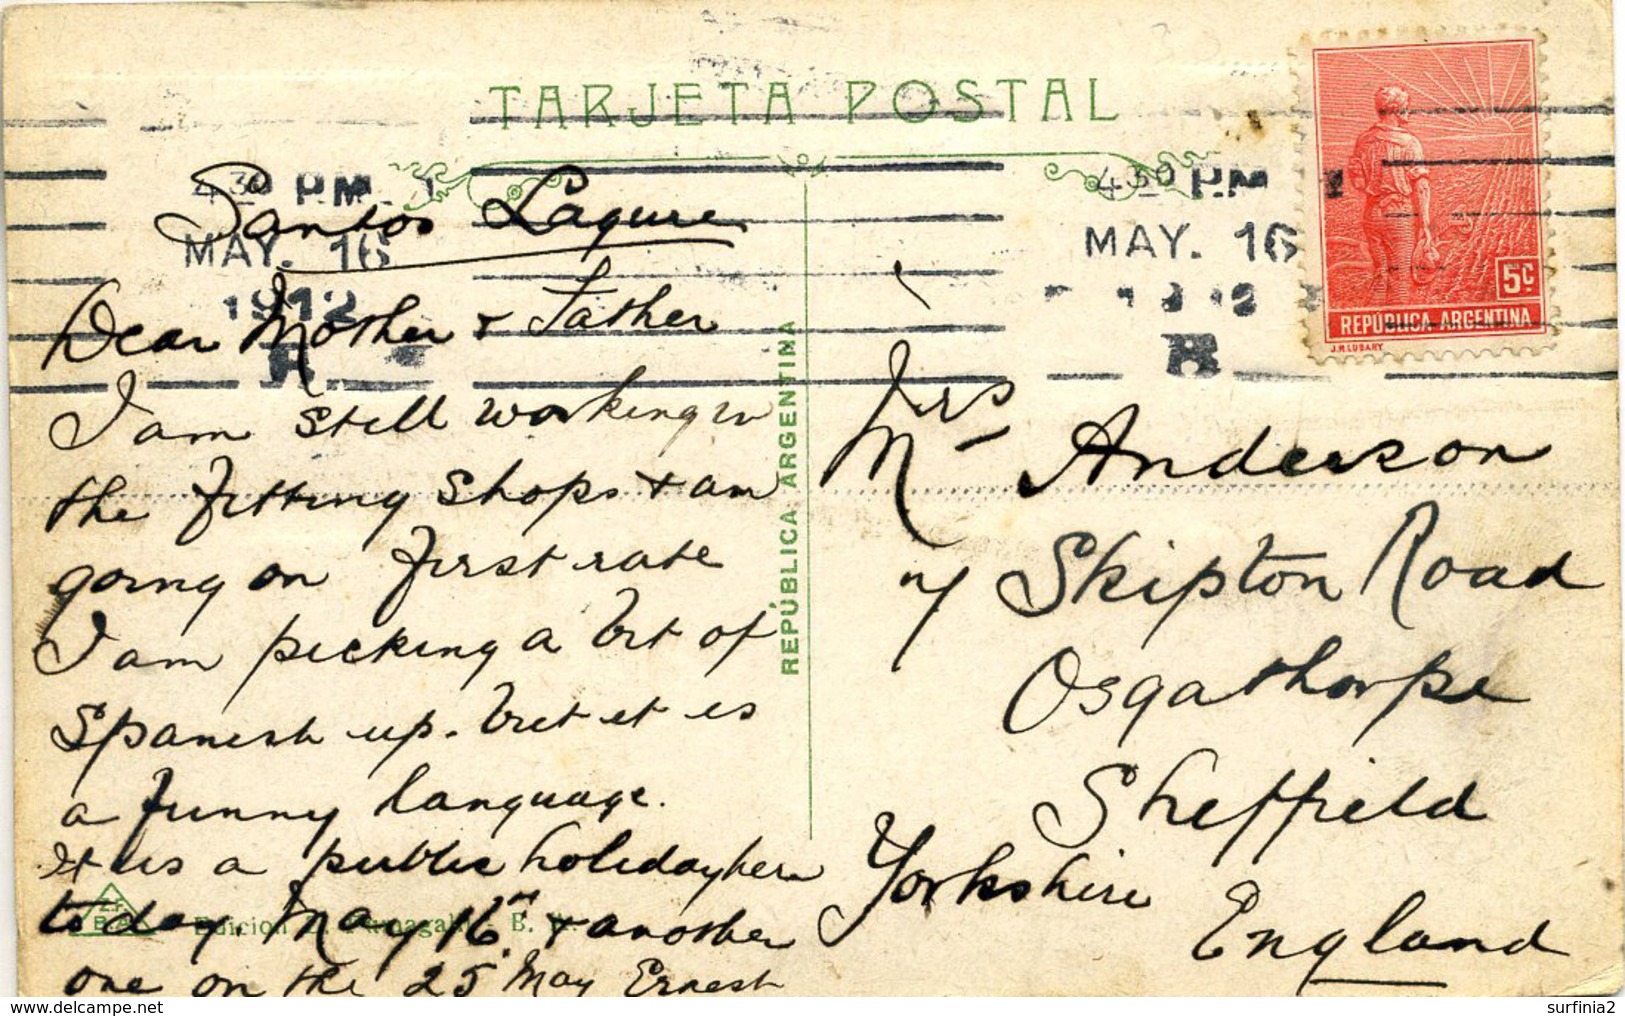 TARJETA POSTAL
4 30 P.M.
MAY. 16
1912
B.
4 30 P.M.
MAY. 16
1912
B
5C
REPÚBLICA ARGENTINA
J.M. LUBARY
Santos Lagure
Dear Mother & Father
I am still working in
the fitting shops & am
going on first rate
I am picking a bit of
Spanish up. but it is
a funny language.
it is a public holiday here
to day. May 16th & another
one on the 25 May Ernest
REPÚBLICA ARGENTINA
Edicion
B. A.
Mrs Anderson
Skipton Road
Osgathorpe
Sheffield
Yorkshire
England
surfinia2